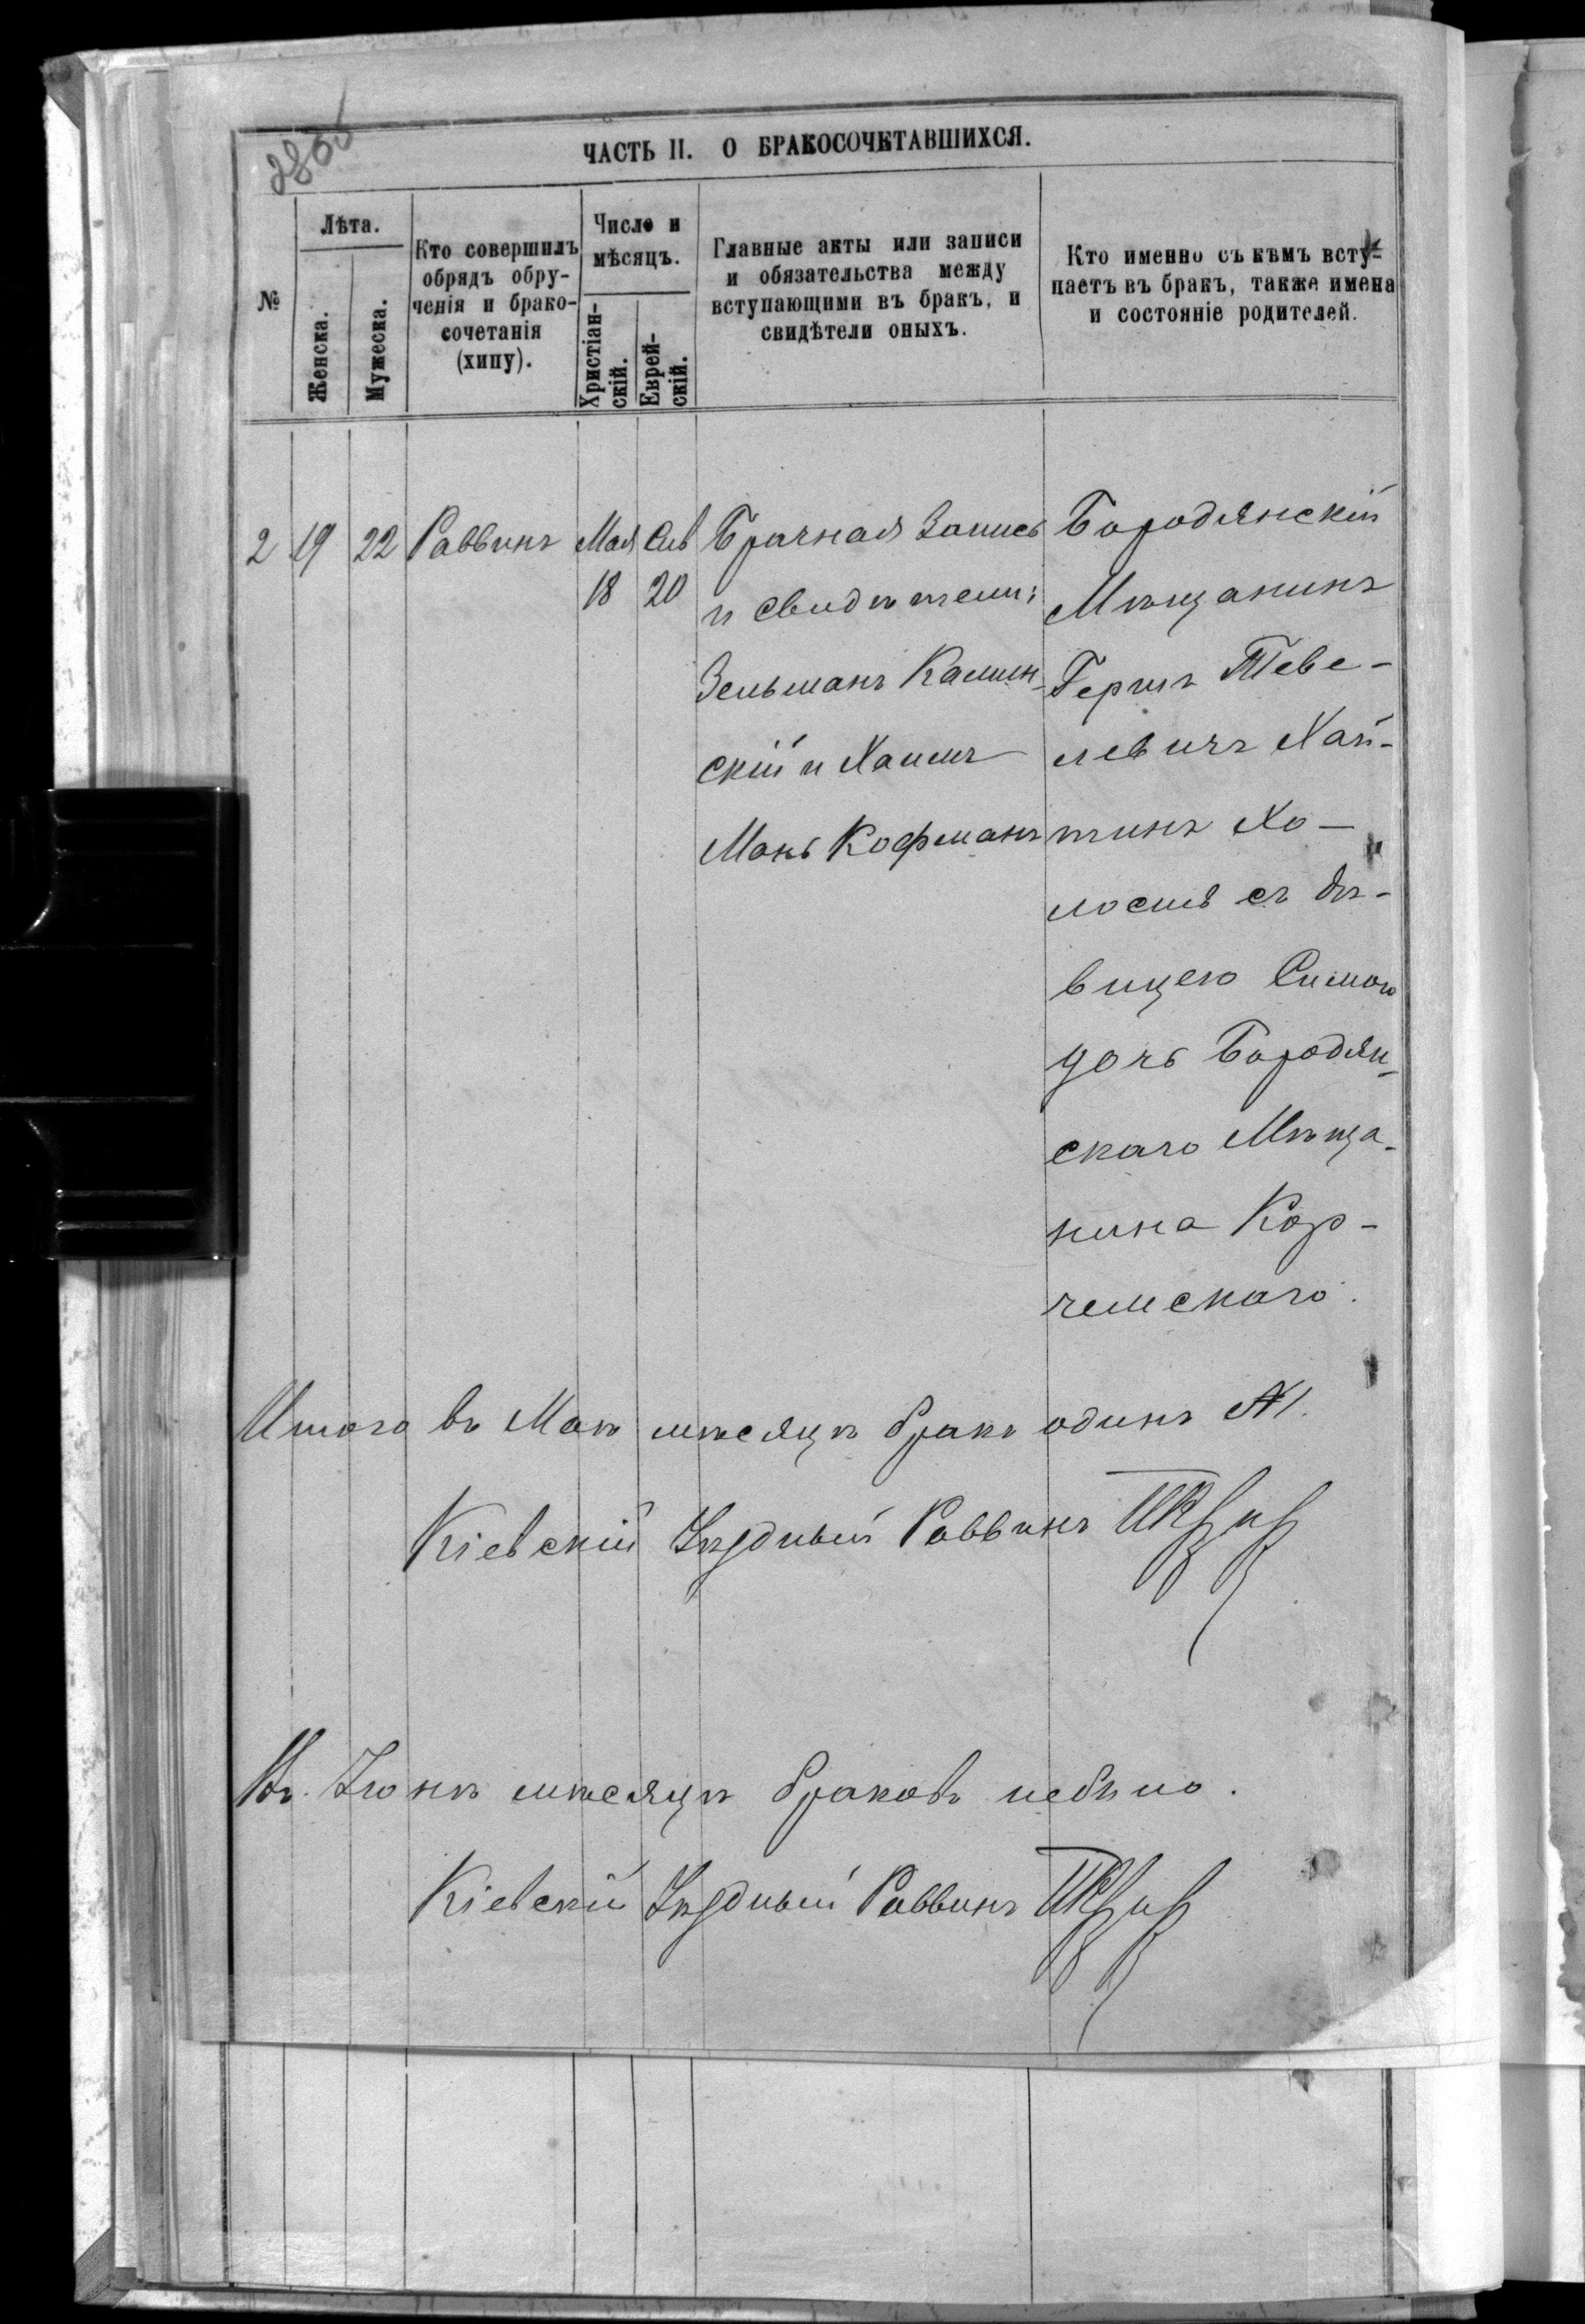 ЧАСТЬ II. О БРАКОСОЧЕТАВШИХСЯ.
№
Лѣта.
Женска.
Мужеска.
Кто совершилъ
обрядъ обру-
ченія и брако-
сочетанія
(хипу).
Число и
мѣсяцъ.
Христіан-
скій.
Еврей-
скій.
Главные акты или записи
и обязательства между
вступающими въ бракъ, и
свидѣтели оныхъ.
Кто именно съ кѣмъ всту-
паетъ въ бракъ, также имена
и состояніе родителей.
2 19 22 Раввинъ Мая Сив
18 20
Брачная Запись
и свидѣтели:
Зельманъ Камин-
скій и Хаимъ
Манъ Кофманъ
Бородянскій
Мѣщанинъ
Гершъ Теве-
левичъ Хай-
тинъ Хо-
лостъ съ дѣ-
вицею Симою
дочь Бородян-
скаго Мѣща-
нина Кор-
чемскаго.
Итого въ Маѣ мѣсяцѣ бракъ одинъ №1.
Кіевскій Уѣздный Раввинъ
Въ Іюнѣ мѣсяцѣ браковъ небыло.
Кіевскій Уѣздный Раввинъ